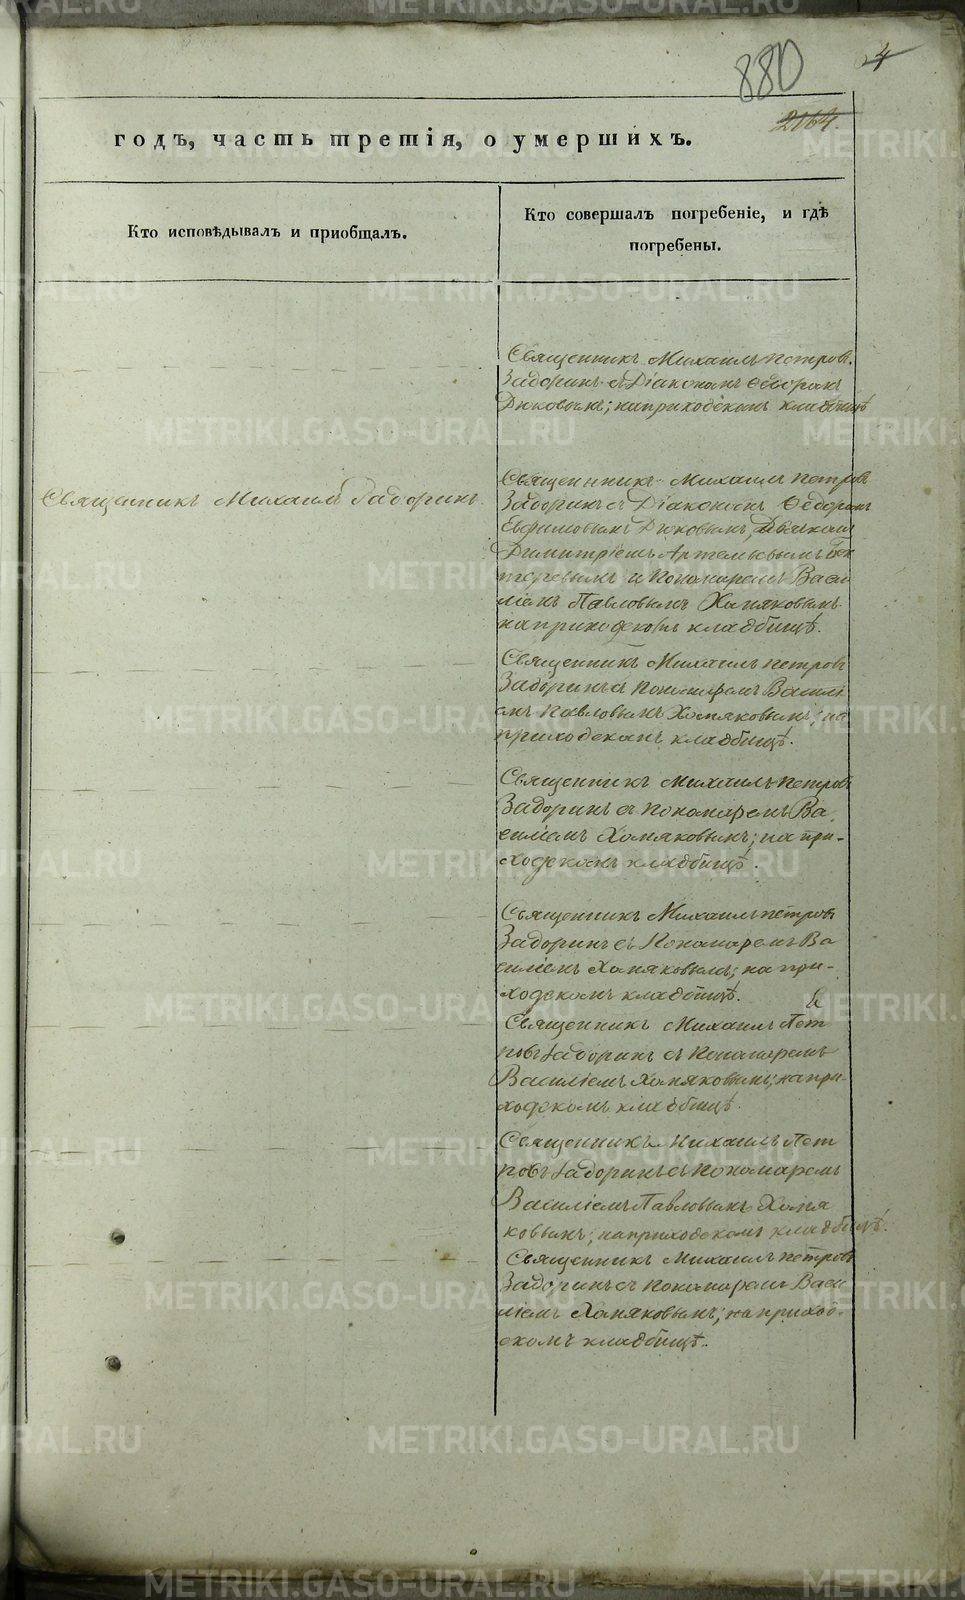 880
4
2164.
годъ, часть третія, о умершихъ.
Кто исповѣдывалъ и приобщалъ.
Кто совершалъ погребеніе, и гдѣ
погребены.
Священникъ Михаилъ Петровъ
Задоринъ съ Діакономъ Ѳедоромъ
Дюковымъ; на приходскомъ кладбищѣ
Священникъ Михаилъ Задоринъ.
Священникъ Михаилъ Петровъ
Задоринъ съ Діакономъ Ѳедоромъ
Евфимовымъ Дюковымъ, Дьячкомъ
Димитріемъ Артемьевымъ
и Пономаремъ Васи
ліемъ Павловымъ Хомяковымъ
на приходскомъ кладбищѣ.
Священникъ Михаилъ Петровъ
Задоринъ съ Пономаремъ Василі
емъ Павловымъ Хомяковымъ; на
приходскомъ кладбищѣ.
Священникъ Михаилъ Петровъ
Задоринъ съ Пономаремъ Ва
силіемъ Хомяковымъ; на при-
ходскомъ кладбищѣ.
Священникъ Михаилъ Петровъ
Задоринъ съ Пономаремъ Ва
силіемъ Хомяковымъ; на при-
ходскомъ кладбищѣ.
Священникъ Михаилъ Пет
ровъ Задоринъ съ Пономаремъ
Василіемъ Хомяковымъ; на при-
ходскомъ кладбищѣ.
Священникъ Михаилъ Пет
ровъ Задоринъ съ Пономаремъ
Василіемъ Павловымъ Хомя
ковымъ; на приходскомъ кладбищѣ.
Священникъ Михаилъ Петровъ
Задоринъ съ Пономаремъ Васи
ліемъ Хомяковымъ; на приход-
скомъ кладбищѣ.
METRIKI.GASO-URAL.RU